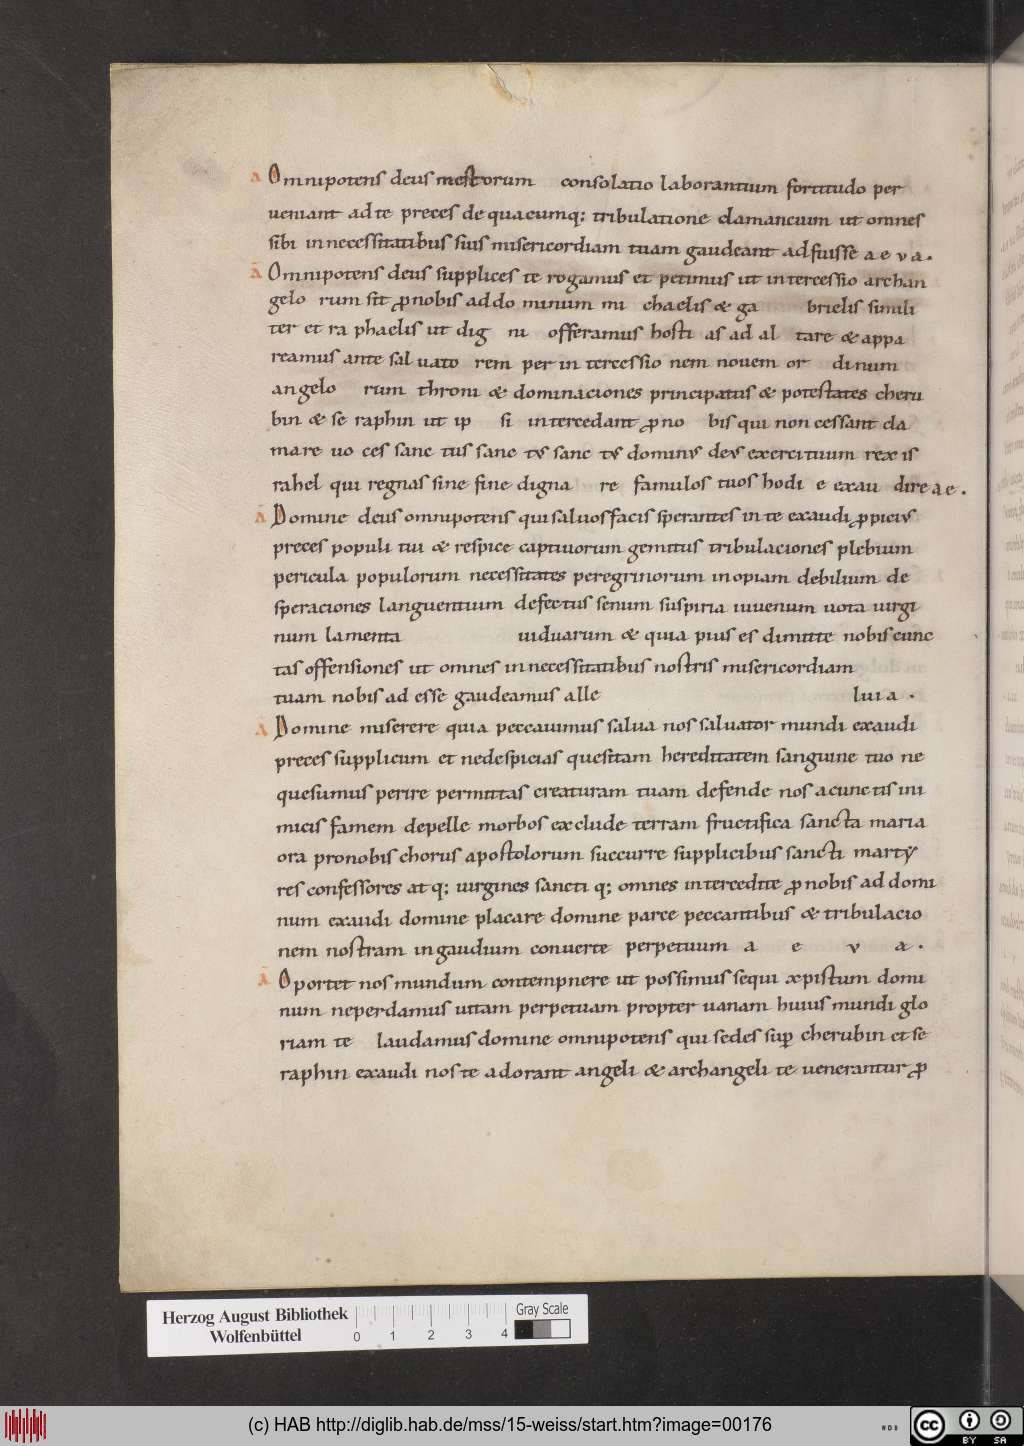 A Omnipotens deus mestorum consolatio laborantium fortitudo per
ueniant ad te preces de quacumq; tribulatione clamancium ut omnes
sibi in necessitatibus suis misericordiam tuam gaudeant adfuisse a e v a .
Ā Omnipotens deus supplices te rogamus et petimus ut intercessio archan
gelo rum sit ꝓnobis ad do minum mi chaelis & ga brielis simili
ter et ra phaelis ut dig ni offeramus hosti as ad al tare & appa
reamus ante sal uato rem per in tercessio nem nouem or dinum
angelo rum throni & dominaciones principatus & potestates cheru
bin & se raphin ut ip si intercedant ꝓno bis qui non cessant cla
mare uo ces sanc tus sanc tvs sanc tvs dominvs devs exercituum rex is
rahel qui regnas sine fine digna re famulos tuos hodi e exau dire a e .
Ā Domine deus omnipotens qui saluos facis sperantes in te exaudi ꝓpicivs
preces populi tui & respice captiuorum gemitus tribulaciones plebium
pericula populorum necessitates peregrinorum inopiam debilium de
speraciones languentium defectus senum suspiria iuuenum uota uirgi
num lamenta uiduarum & quia pius es dimitte nobis cunc
tas offensiones ut omnes in necessitatibus nostris misericordiam
tuam nobis ad esse gaudeamus alle luia .
Ā Domine miserere quia peccauimus salua nos saluator mundi exaudi
preces supplicum et nedespicias quesitam hereditatem sanguine tuo ne
quesumus perire permittas creaturam tuam defende nos a cunctis ini
micis famem depelle morbos exclude terram fructifica sancta maria
ora pronobis chorus apostolorum succurre supplicibus sancti marty
res confessores at q; uirgines sancti q; omnes intercedite ꝓnobis ad domi
num exaudi domine placare domine parce peccantibus & tribulacio
nem nostram in gaudium conuerte perpetuum a e v a .
Ā Oportet nos mundum contempnere ut possimus sequi xpistum domi
num neperdamus uitam perpetuam propter uanam huius mundi glo
riam te laudamus domine omnipotens qui sedes suꝑ cherubin et se
raphin exaudi nos te adorant angeli & archangeli te uenerantur ꝓ
Herzog August Bibliothek
Wolfenbüttel
0 1 2 3 4
Gray Scale
(c) HAB http://diglib.hab.de/mss/15-weiss/start.htm?image=00176
WDB
cc BY SA